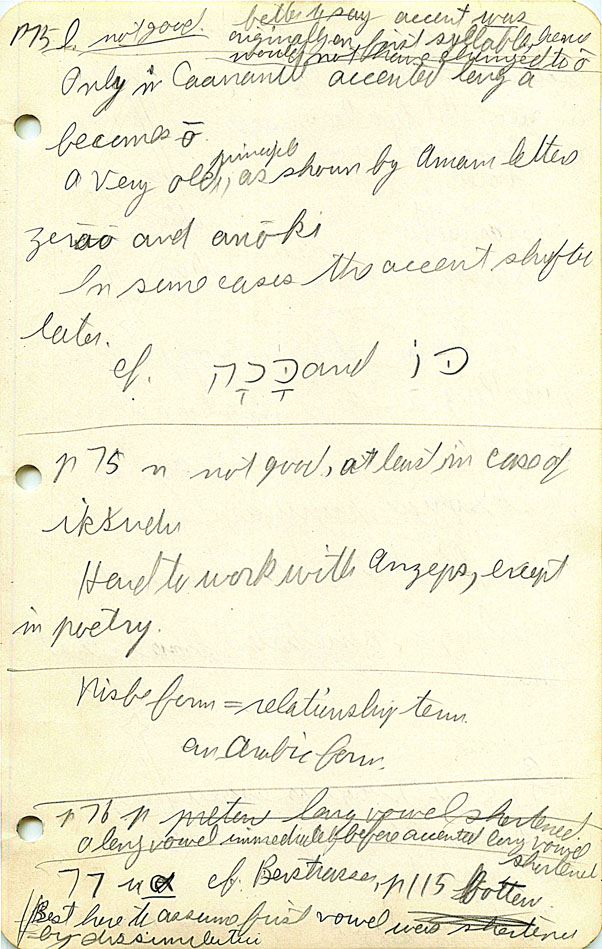 p 75 l. not good. better to say accent was
originally on first syllable, hence
would not have changed to ō
Only in Canaanite accented long a
becomes ō
A very old principle, as shown by Amarn letters
and anōki
In some cases the accent shifted
later.
cf. כָּכָה and כּוֹ
p 75 n not good, at least in case of
Hard to work with Anzeps, except
in poetry.
Nisbe form = relationship term
an Arabic form.
p 76 p long vowel shortened.
a long vowel immediately before accented long vowel
shortened
77 u α cf. p 115 bottom.
Best here to assume first vowel was shortened
by dissimilation